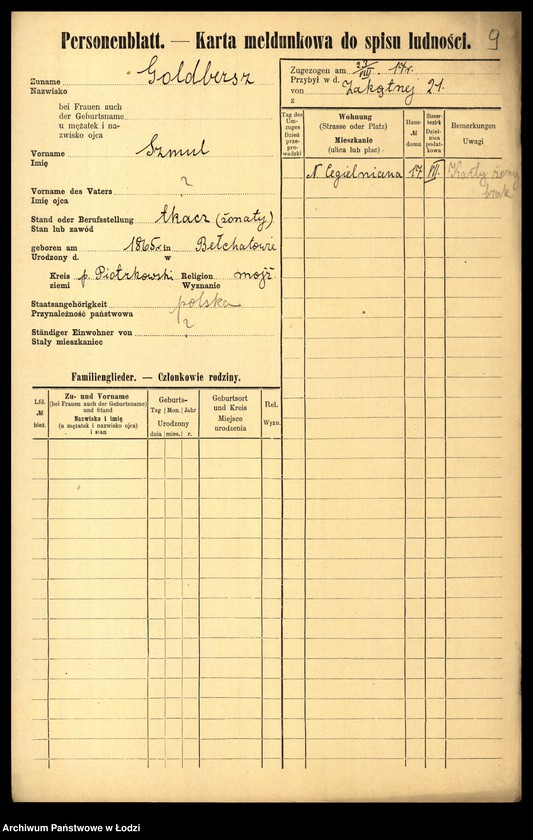 Personenblatt. — Karta meldunkowa do spisu ludności.
9
Zuname
Nazwisko
Goldbersz
bei Frauen auch
der Geburtsname
u mężatek i na-
zwisko ojca
Vorname
Imię
Szmul
Vorname des Vaters
Imię ojca
?
Stand oder Berufsstellung
Stan lub zawód
tkacz (żonaty)
geboren am 1865 r. in Bełchatowie
Urodzony d. w
Kreis p. Piotrkowski Religion mojż.
ziemi Wyznanie
Staatsangehörigkeit
Przynależność państwowa
polska
Ständiger Einwohner von
Stały mieszkaniec
?
Familienglieder. — Członkowie rodziny.
Lfd. № bież.
Zu- und Vorname
(bei Frauen auch der Geburtsname)
und Stand
Nazwisko i imię
(u mężatek i nazwisko ojca)
i stan
Geburts-
Tag | Mon. | Jahr
Urodzony
dnia | mies. | r.
Geburtsort
und Kreis
Miejsce
urodzenia
Rel.
Wyzn.
Zugezogen am 23/VIII 17 r.
Przybył w d.
von Zakątnej 21.
z
Tag des
Um-
zuges
Dzień
prze-
pro-
wadzki
Wohnung
(Strasse oder Platz)
Mieszkanie
(ulica lub plac)
Haus-
№
domu
Steuer-
bezirk
Dziel-
nica
podat-
kowa
Bemerkungen
Uwagi
N. Cegielniana 17 III. Karty żony
brak
Archiwum Państwowe w Łodzi